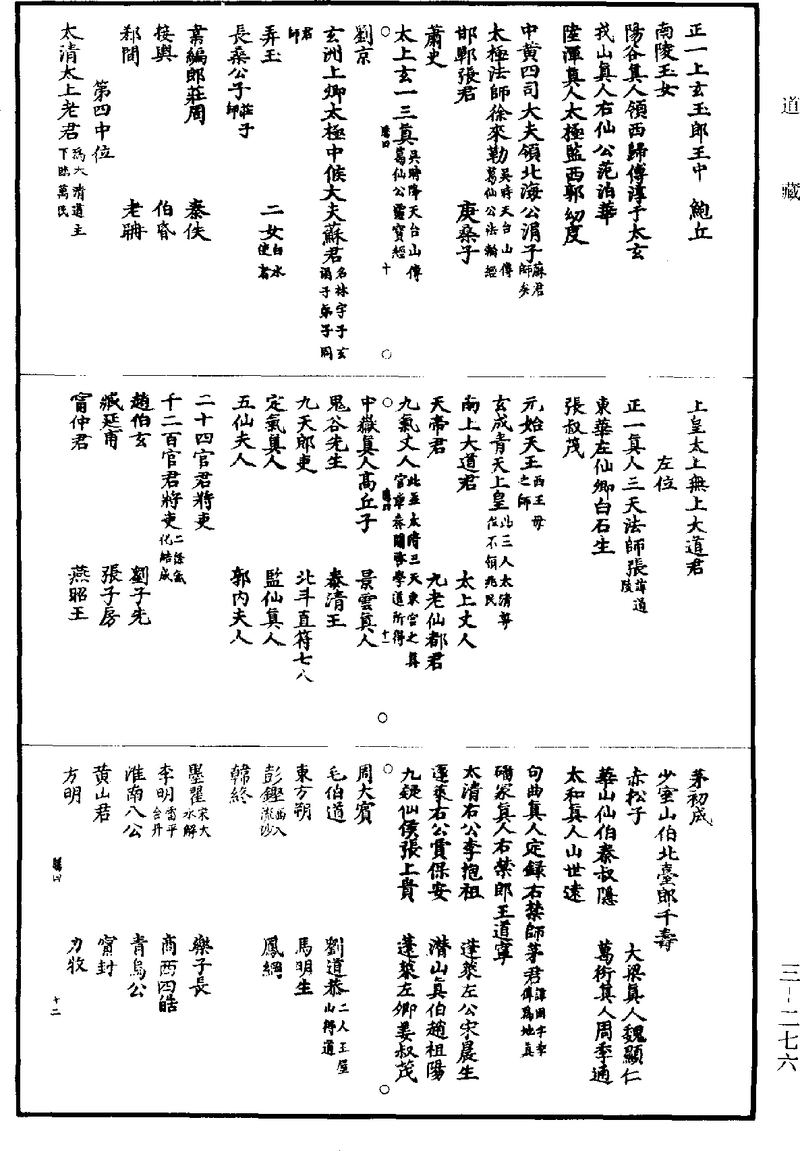 道藏
三-二七六
正一上玄玉郎王中　鮑丘
南陵玉女
陽谷眞人領西歸傅淳于太玄
戎山眞人右仙公范泊華
陸渾眞人太極監西郭幼度
中黄四司大夫領北海公涓子蘇君師矣
太極法師徐來勒吳時天台山傳葛仙公法輪經
邯鄲張君　庚桑子
蕭史
太上玄一三真吳時降天台山傳葛仙公靈寶經
十
劉京
玄洲上卿太極中候大夫蘇君名林字子玄涓子弟子周君師
弄玉　二女白水使者
長桑公子莊子師
韋編郎莊周　秦佚
接輿　伯昏
郄間　老聃
第四中位
太清太上老君爲太清道主下臨萬民
上皇太上無上大道君
左位
正一眞人三天法師張諱道陵
東華左仙卿白石生
張叔茂
元始天王西王母之師
玄成青天上皇此三人太清尊位不領兆民
南上大道君　太上丈人
天帝君　九老仙都君
九氣丈人
十一
中嶽眞人高丘子　景雲眞人
鬼谷先生　泰清王
九天郎吏　北斗直符七八
定氣眞人　監仙眞人
五仙夫人　郭內夫人
二十四官君將吏
千二百官君將吏二條氣化結成
趙伯玄　劉子先
臧延甫　張子房
甯仲君　燕昭王
茅初成
少室山伯北臺郎千壽
赤松子　大梁眞人魏顯仁
華山仙伯秦叔隱　萬衍其人周季通
太和眞人山世遠
句曲眞人定錄右禁師茅君諱固字季偉爲地真
磻冢眞人右禁郎王道寧
太清右公李抱祖　蓬萊左公宋晨生
蓬萊右公賈保安　潜山眞伯趙祖陽
九疑仙侯張上貴　蓬萊左卿姜叔茂
周大賓
毛伯道　劉道恭二人王屋山得道
東方朔　馬明生
彭鏗西入流沙　鳳綱
韓終
墨翟宋大水解　樂子長
李明　商西四皓
淮南八公　青烏公
黄山君　甯封
方明　力牧
十二